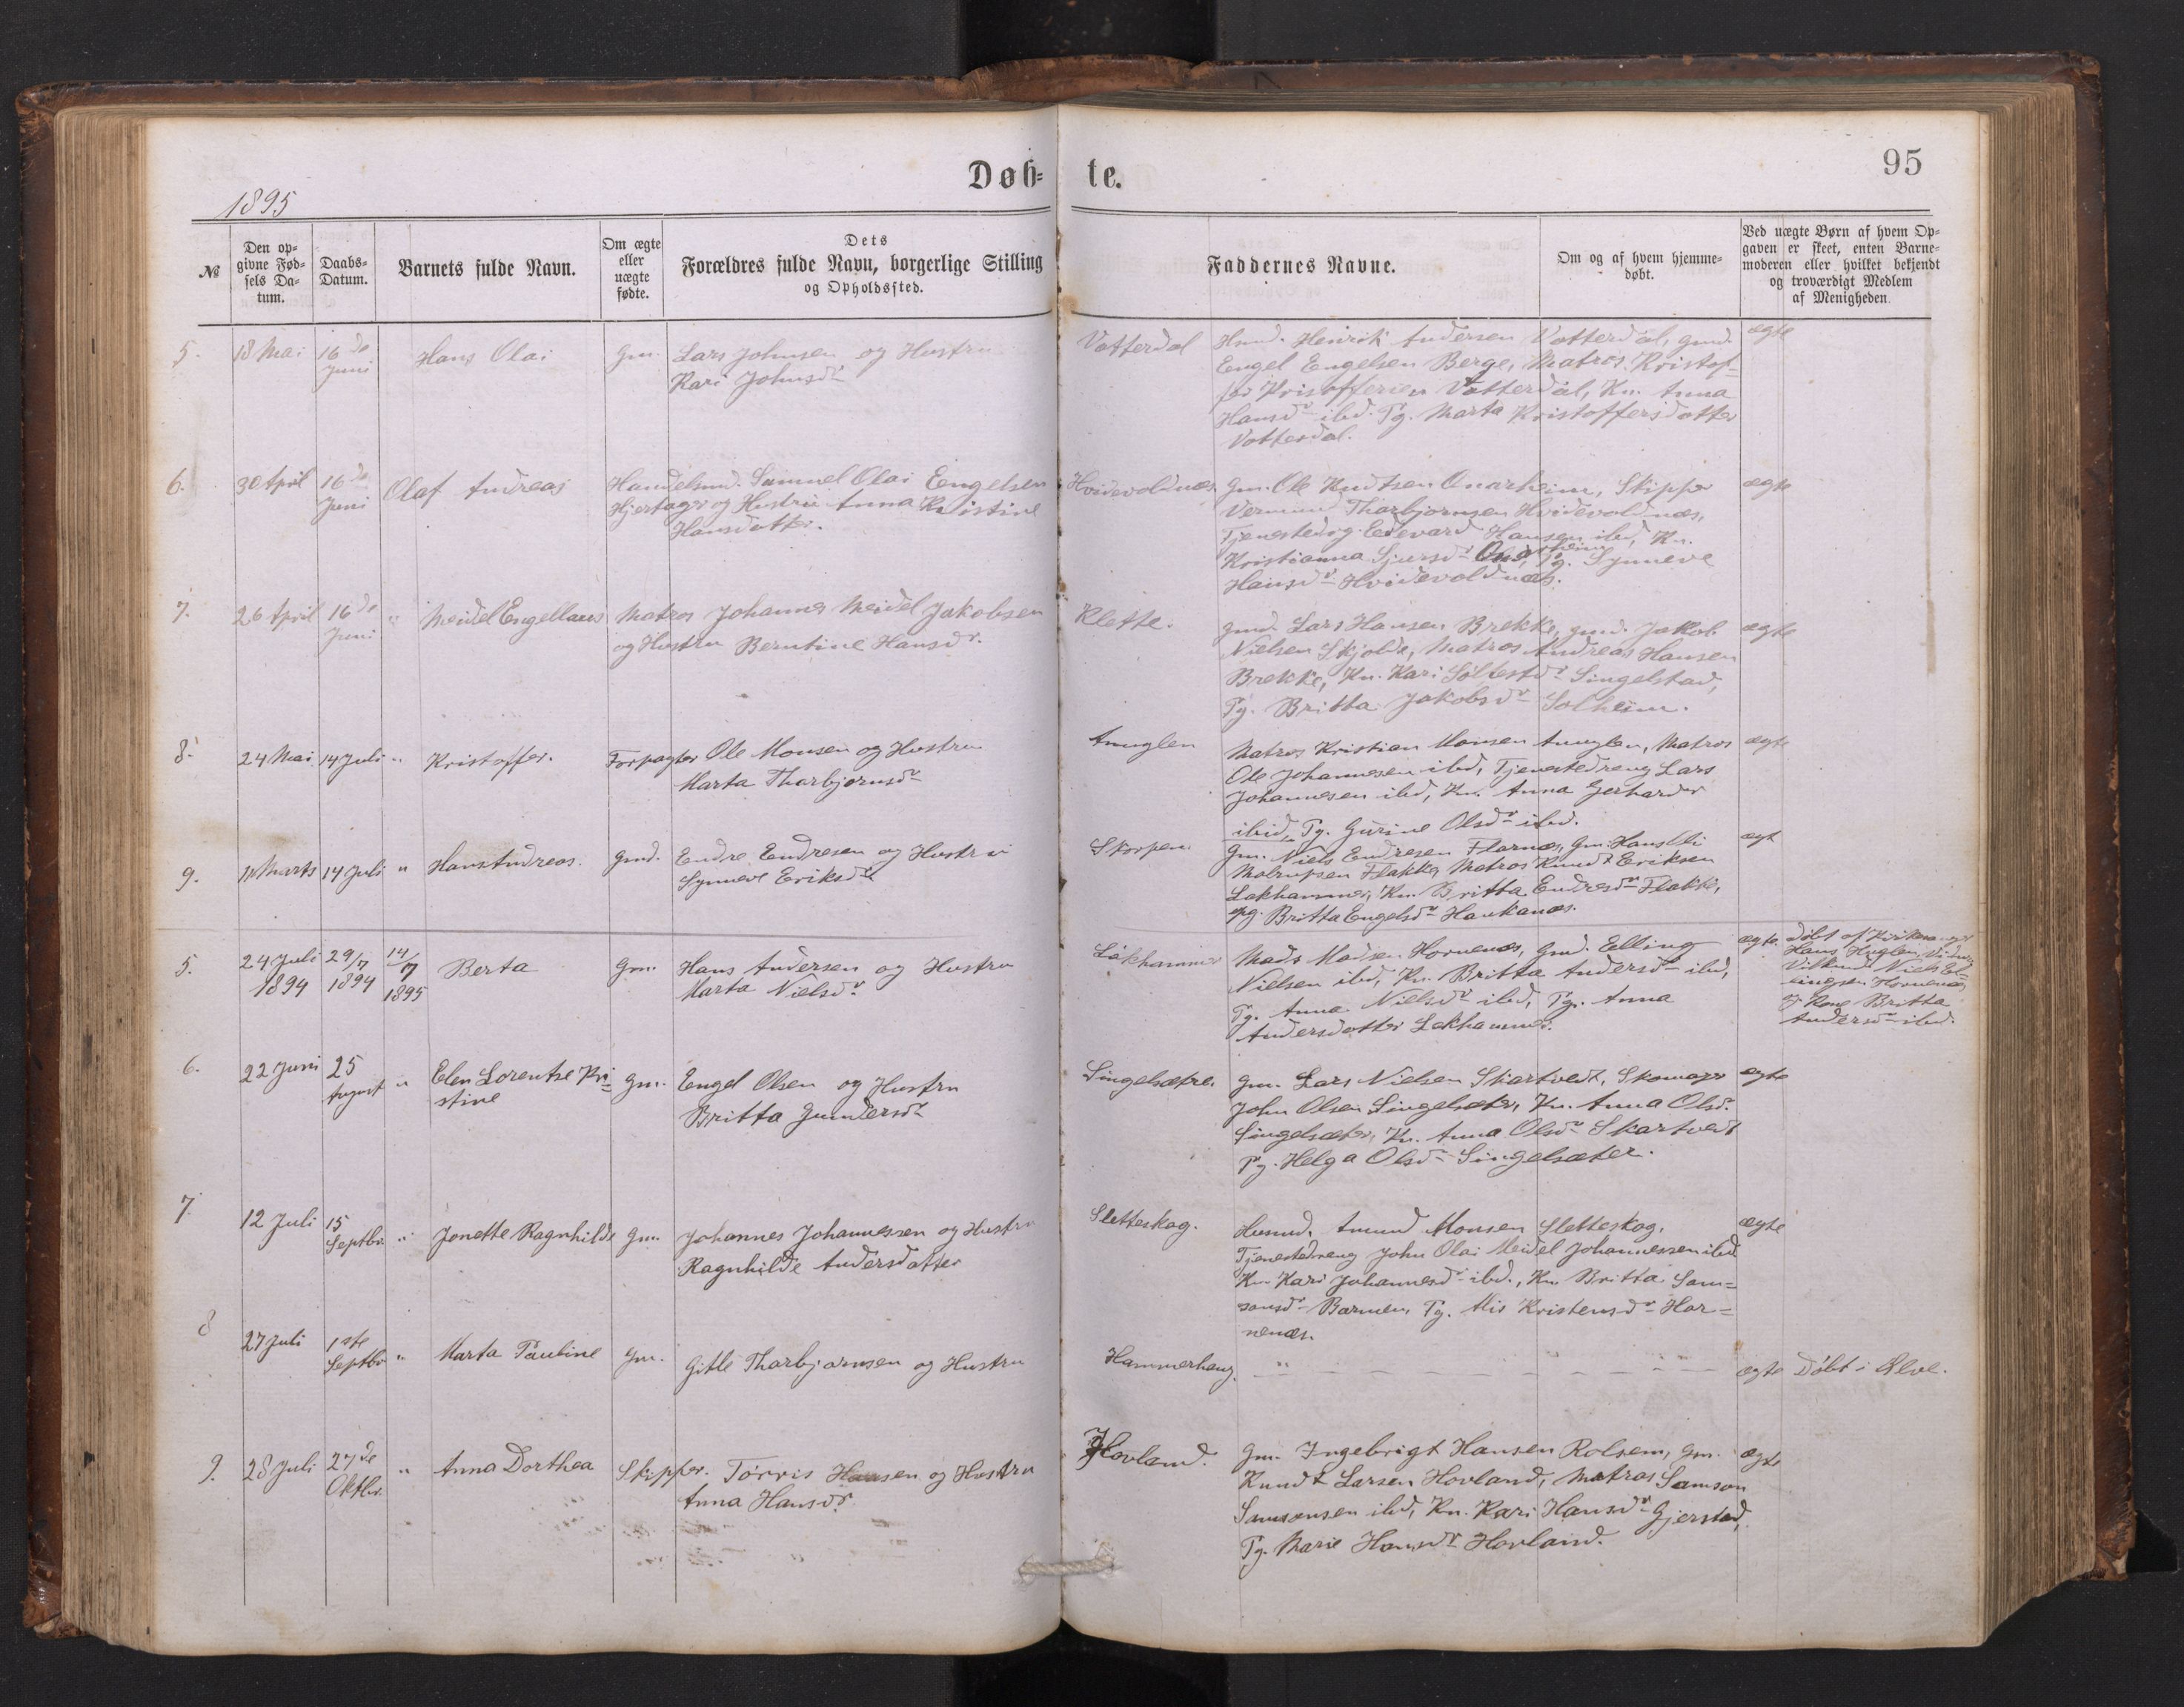 Døb-
te.
95
1895
№
Den op-
givne Fød-
sels Da-
tum.
Daabs-
Datum.
Barnets fulde Navn.
Om ægte
eller
uægte
fødte.
Dets
Forældres fulde Navn, borgerlige Stilling
og Opholdssted.
Faddernes Navne.
Om og af hvem hjemme-
døbt.
Ved uægte Børn af hvem Op-
gaven er skeet, enten Barne-
moderen eller hvilket bekjendt
og troværdigt Medlem
af Menigheden.
5.
18 Mai
16de
Juni
Hans Olai
Gm.
Lars Johnsen og Hustru
Kari Johnsdr
Vatterdal
Husmd. Henrik Andersen Vatterdal, gmd.
Engel Engelsen Berge, Matros Kristof-
fer Kristoffersen Vatterdal, Kn. Anna
Hansdr ibd. Pg. Marta Kristoffersdatter
Vatterdal.
ægte
6.
30 April
16de
Juni
Olaf Andreas
Handelsmd. Samuel Olai Engelsen
Hjertager og Hustru Anna Kristine
Hansdatter.
Hvidevoldnæs
Gm. Ole Knudtsen Onarheim, Skipper
Vermund Tharbjørnsen Hvidevoldnæs,
Tjenestedrg. Edevard Hansen ibd, Kn.
Kristianna Sjursdr Onarheim, Pg. Synneve
Hansdr Hvidevoldnæs.
ægte
7.
26 April
16de
Juni
"
Meidel Engellaus
Matros Johannes Meidel Jakobsen
og Hustru Berntine Hansdr.
Klette.
gmd. Lars Hansen Brekke, gmd. Jakob
Nielsen Skjolde, Matros Andreas Hansen
Brekke, Kn. Kari Sjltestdr Singelstad,
Pg. Britta Jakobsdr Solheim.
ægte
8.
24 Mai
14 Juli
"
Kristoffer.
Forpagter Ole Monsen og Hustru
Marta Tharbjørnsdr
Anuglen
Matros Kristian Monsen Anuglen, Matros
Ole Johannesen ibd, Tjenestedreng Lars
Johannesen ibd, Kn. Anna Gerhardsdr
ibid, Pg. Gurine Olsdr ibd.
ægte
9.
11 Marts
14 Juli
"
Hans Andreas.
Gmd.
Endre Endresen og Hustru
Synneve Eriksdr
Skorpen
Gm. Niels Endresen Flornæs, Gm. Hans
Flakke, Matros Knudt Eriksen
Lokhammer, Kn. Britta Endresdr Flakke,
pg. Britta Engelsdr Haukanæs.
ægt
5.
24 Juli
1894
29/7
1894
14/7
1895
Berta
Gm.
Hans Andersen og Hustru
Marta Nielsdr.
Lokhammer
Mads Madsen Hornenæs, Gmd. Elling
Nielsen ibd, Kn. Britta Andersdr ibd,
Pg. Anna Nielsdr ibd, Pg. Anna
Andersdatter Lokhammer.
ægte
Døbt af Kirkesanger
Hans Huglen, Vidner
Niels El-
lingsen Hornenæs,
og Kone Britta
Andersdr ibd.
6.
22 Juni
25
August
"
Elen Lorentse Kri-
stine
Gm.
Engel Olsen og Hustru
Britta Gunnersdr
Singelsæter
Gm. Lars Nielsen Skartvedt, Skomager
John Olsen Singelsæter, Kn. Anna Olsdr.
Singelsæter, Kn. Anna Olsdr Skartvedt
Pg. Helga Olsdr Singelsæter.
ægte
7.
12 Juli
15
Septbr.
"
Jonette Ragnhilde
Gm.
Johannes Johannessen og Hustru
Ragnhilde Andersdatter
Sletteskog.
Husmd. Amund Monsen Sletteskog.
Tjenestedreng John Olai Meidel Johannessen ibd
Kn. Kari Johannesdr ibd., Kn. Britta Sam-
sonsdr Barmen, Pg. Mis Kristensdr Hor-
nenæs.
ægte
8
27 Juli
1ste
Septbr
"
Marta Pauline
Gm.
Gitle Tharbjørnsen og Hustru
Hammerhaug
"
ægte
Døbt i Ølve.
9.
28 Juli
27de
Oktbr.
"
Anna Dorthea
Skipper. Tørris Hansen og Hustru
Anna Hansdr.
Hovland.
Gm. Ingebrigt Hansen Rolsem, Gm.
Knudt Larsen Hovland, Matros Samson
Samsonsen ibd, Kn. Kari Hansdr Gjerstad,
Pg. Marie Hansdr Hovland.
ægte